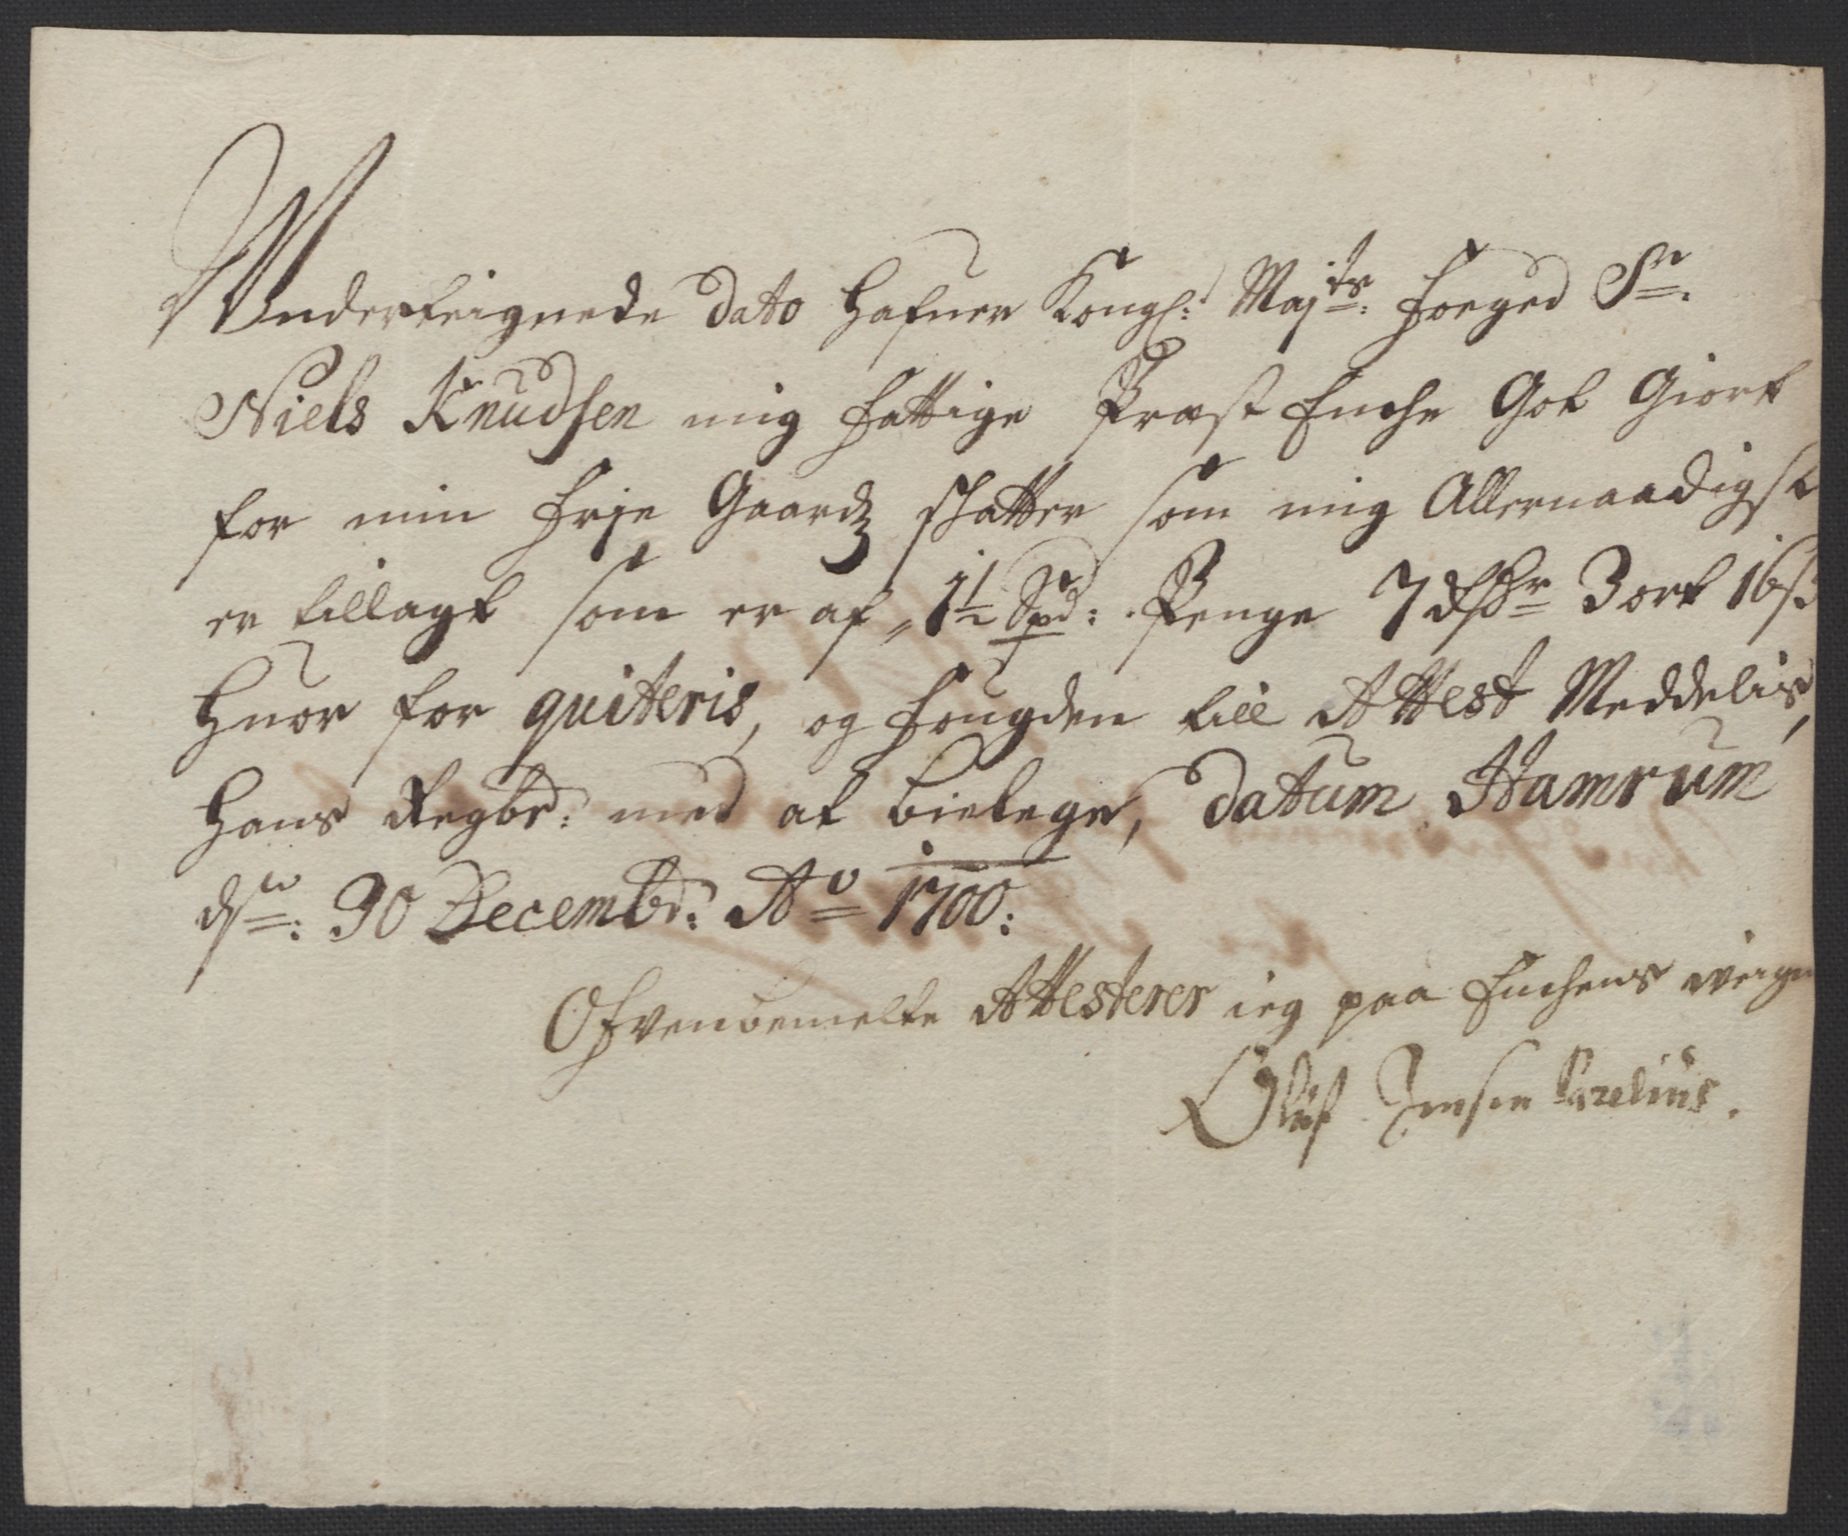 Underteignede dato hafuer Kongl: Majts: foeged Sr.
Niels Knudsen mig fattige Præst Enche Got Giort
for min frje Gaardz skatter som mig Allernaadigst
er tillagt som er af, 1½ Spd: Penge 7 Rdr 3 ort 16 s
huor for quiteris, og fougden till Attest Meddelis,
hans Regbr: med at bielege, datum Hamrum
dn: 30 Decembr: Ao 1700:
Ofvenbemelte Attesterer ieg paa Enchens veigne
Oluf Jensen